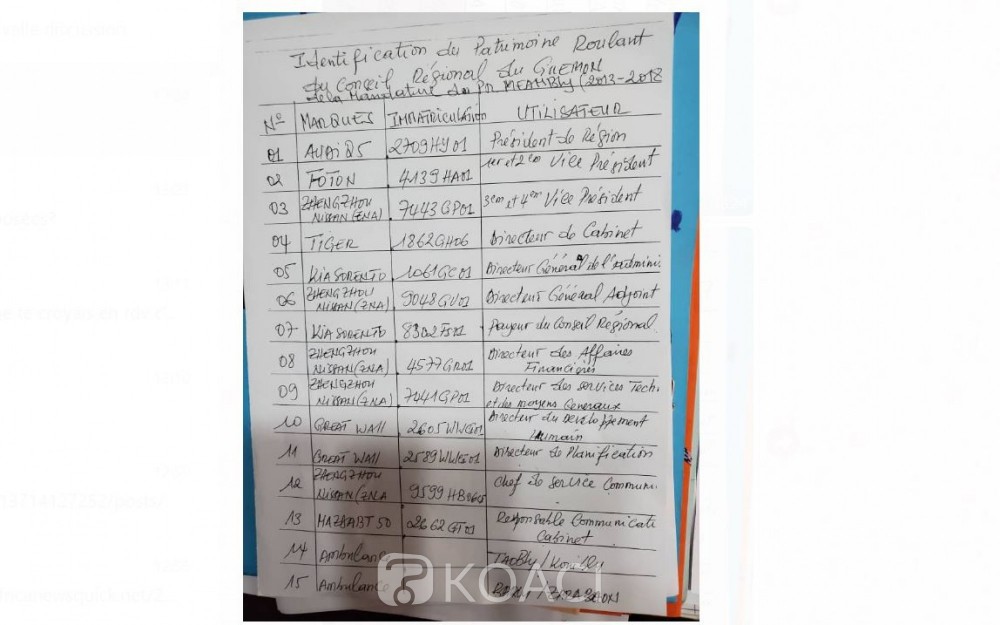 Identification du Patrimoine Roulant
du Conseil Régional du GUEMON
de la Mandature du Dr MEAMBLY (2013-2018
N° MARQUES IMMATRICULATIO UTILISATEUR
01 AUDI Q5 2709HY01 Président de Région
02 FOTON 4139HA01 1er et 2em Vice Président
03 ZHENGZHOU NISSAN (ZNA) 7443GP01 3em et 4em Vice Président
04 TIGER 1862GH06 Directeur de Cabinet
05 KIA SORENTO 1061GC01 Directeur Général de l'admini.
06 ZHENGZHOU NISSAN (ZNA) 9048GU01 Directeur Général Adjoint
07 KIA SORENTO Payeur du Conseil Régional
08 ZHENGZHOU NISSAN (ZNA) 4577GR01 Directeur des Affaires Financières
09 ZHENGZHOU NISSAN (ZNA) 7041GP01 Directeur des services Tech. et des moyens Generaux
10 GREAT WALL 2605WWE01 Directeur du Developpement Humain
11 GREAT WALL 2589WWE01 Directeur de Planification
12 ZHENGZHOU NISSAN (ZNA 9599 Chef de service Communi.
13 MAZDA BT 50 2662GT01 Responsable Communicati Cabinet
14 Ambulance
15 Ambulance
KOACI